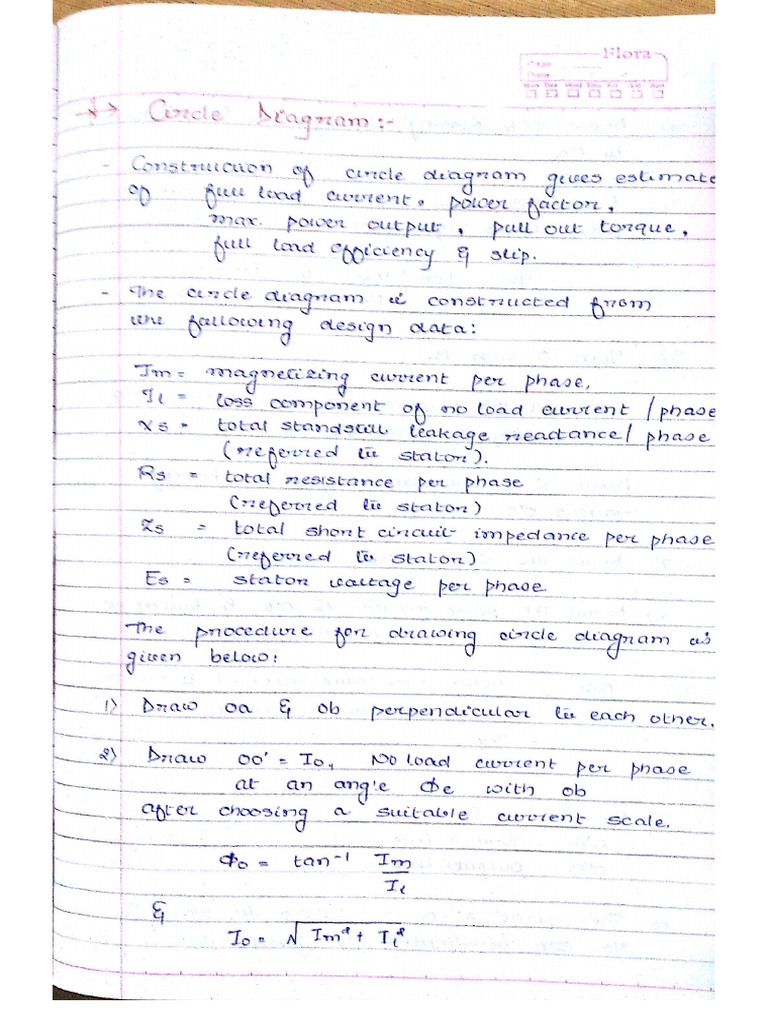 Flora
Mon Tue Wed Thu Fri Sat Sun
Circle Diagram :-
- Construction of circle diagram gives estimate
of full load current, power factor,
max. power output, pull out torque,
full load efficiency & slip.
- The circle diagram is constructed from
the following design data:
Im = magnetizing current per phase,
Il = loss component of no load current / phase
Xs = total standstill leakage reactance / phase
(referred to stator).
Rs = total resistance per phase
(referred to stator)
Zs = total short circuit impedance per phase
(referred to stator)
Es = stator voltage per phase
The procedure for drawing circle diagram is
given below:
1) Draw oa & ob perpendicular to each other.
2) Draw oo' = Io, No load current per phase
at an angle Φo with ob
after choosing a suitable current scale.
Φo = tan⁻¹ Im
Il
&
Io = √Im² + Il²